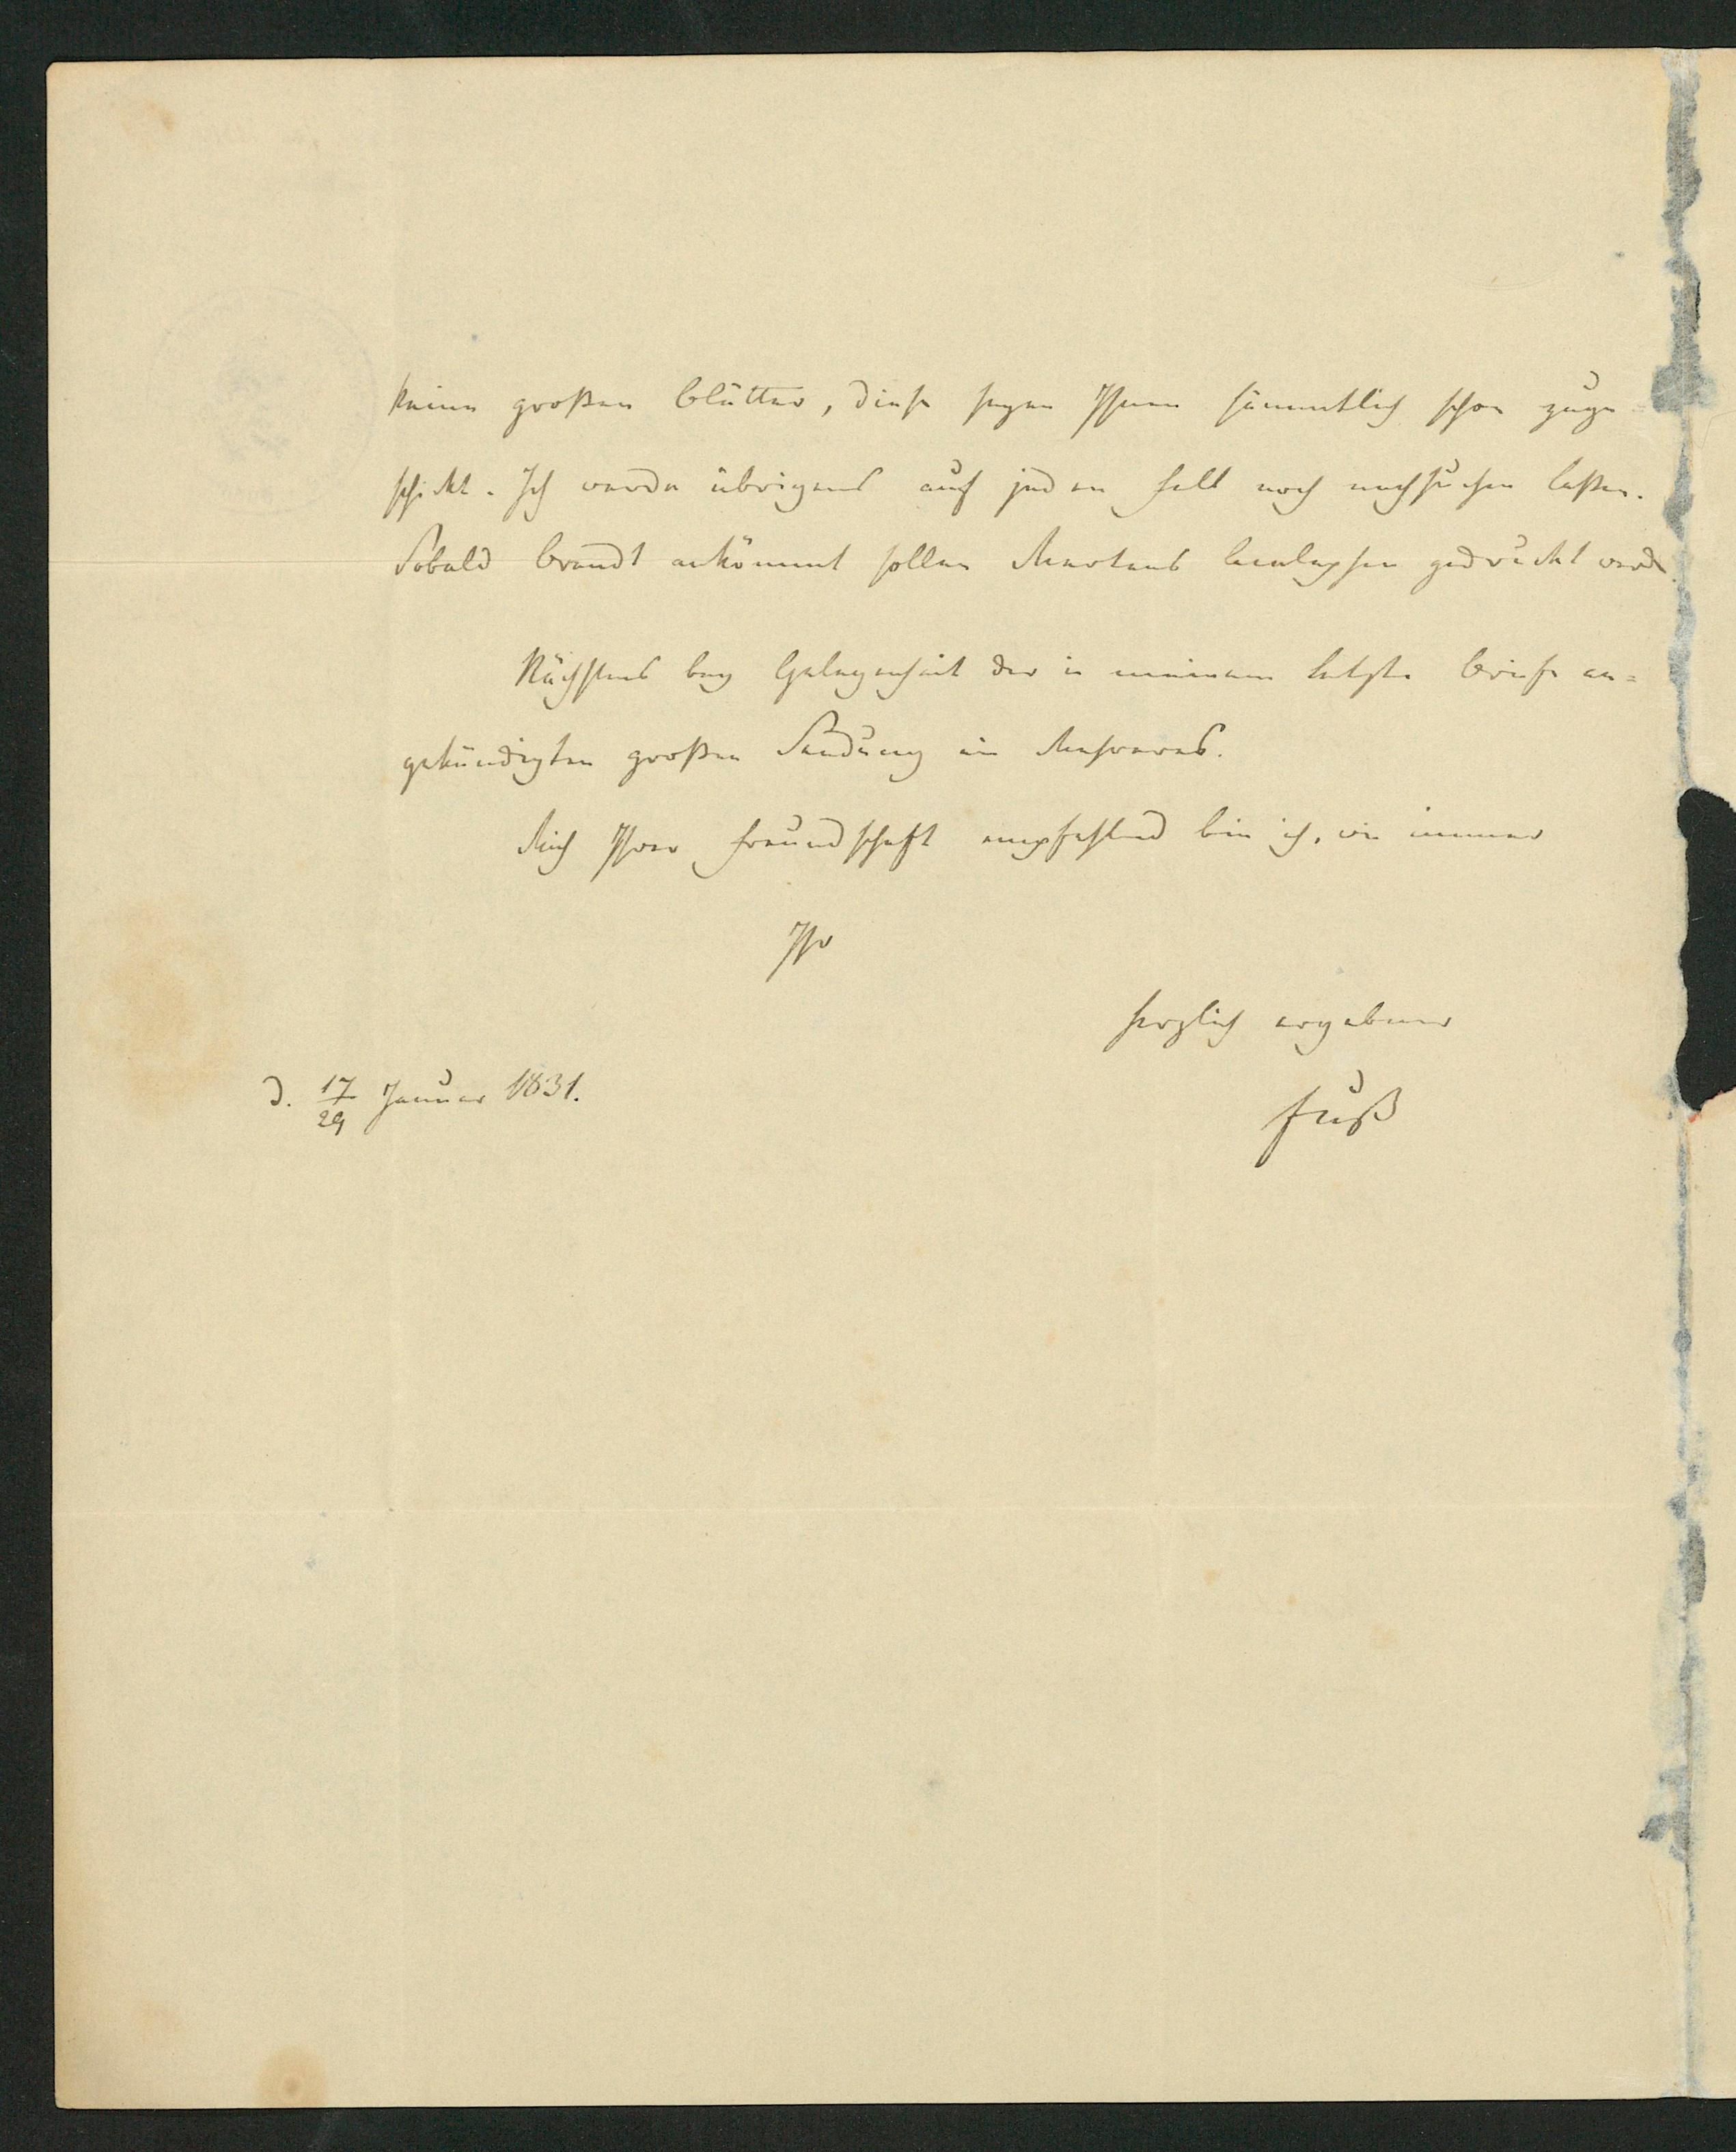 keine großen Blätter, diese seyen Ihnen sämmtlich schon zuge
schickt. Ich werde übrigens auf jeden Fall noch nachsuchen laßen.
Sobald Brandt ankömmt sollen Mertens gedruckt werd
Nächstens bey Gelegenheit der in meinem letzten Briefe an=
gekündigten großen Sendung ein Mehreres.
Mich Ihrer Freundschaft empfehlend bin ich, wie immer
Ihr
herzlich ergebener
Fuß
d. 17/29 Januar 1831.